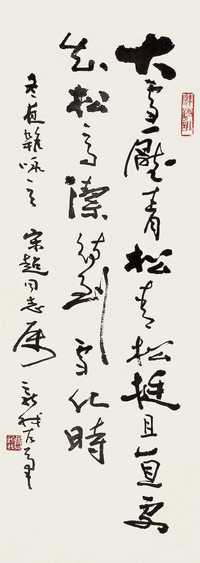 大雪压青松青松挺且直要
知松高洁待到雪化时
冬夜杂咏之一 宋超同志属 新我左笔